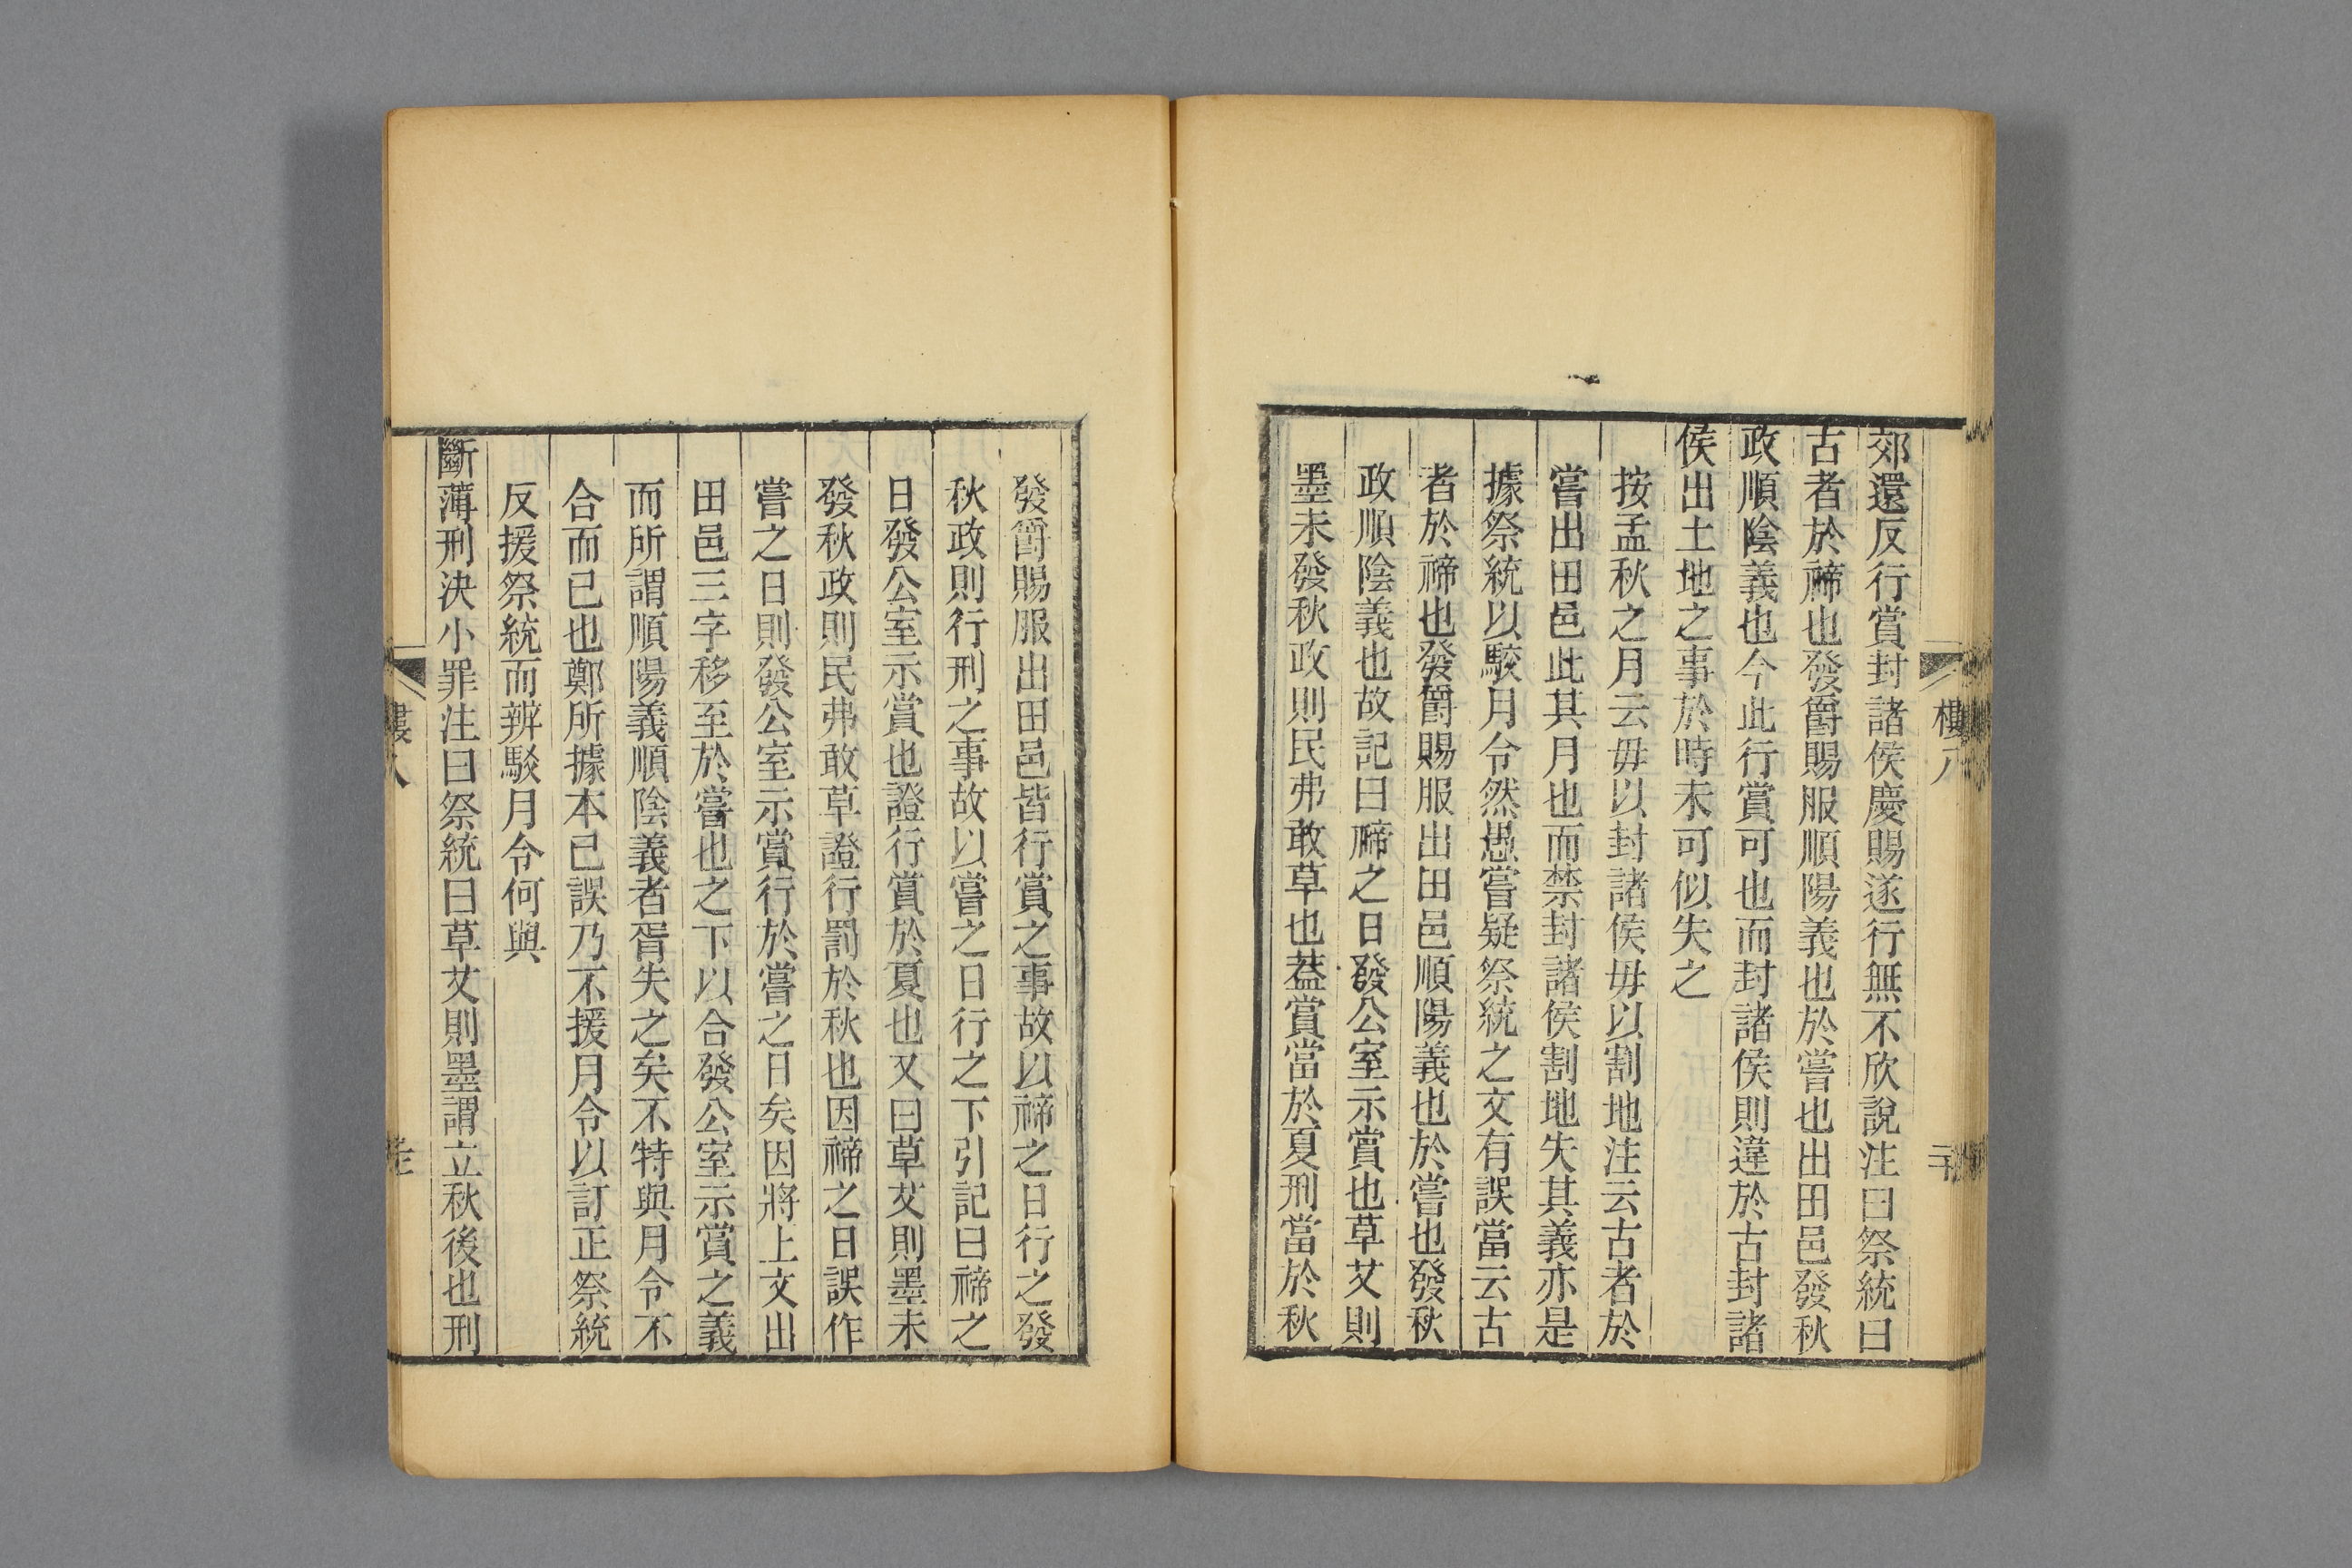 郊還反行賞封諸侯慶賜遂行無不欣說注曰祭統曰
古者於禘也發爵賜服順陽義也於嘗也出田邑發秋
政順陰義也今此行賞可也而封諸侯則違於古封諸
侯出土地之事於時未可似失之
按孟秋之月云毋以封諸侯毋以割地注云古者於
嘗出田邑此其月也而禁封諸侯割地失其義亦是
據祭統以駮月令然愚嘗疑祭統之文有誤當云古
者於禘也發爵賜服出田邑順陽義也於嘗也發秋
政順陰義也故記曰禘之日發公室示賞也草艾則
墨未發秋政則民弗敢草也葢賞當於夏刑當於秋
樓八
發爵賜服出田邑皆行賞之事故以禘之日行之發
秋政則行刑之事故以嘗之日行之下引記曰禘之
日發公室示賞也證行賞於夏也又曰草艾則墨未
發秋政則民弗敢草證行罰於秋也因禘之日誤作
嘗之日則發公室示賞行於嘗之日矣因將上文出
田邑三字移至於嘗也之下以合發公室示賞之義
而所謂順陽義順陰義者胥失之矣不特與月令不
合而已也鄭所據本已誤乃不援月令以訂正祭統
反援祭統而辨駮月令何與
斷薄刑決小罪注曰祭統曰草艾則墨謂立秋後也刑